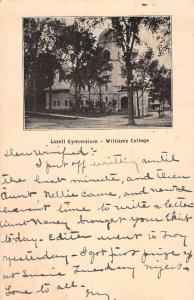 Lasell Gymnasium - Williams College
Dear Winifred:-
I put off writing until
the last minute, and then
Aunt Nellie came, and now
haven't time to write a letter
Aunt Nancy brought your skirt
to-day - went to Troy
yesterday - I got first prize
at Tuesday
Love to all -